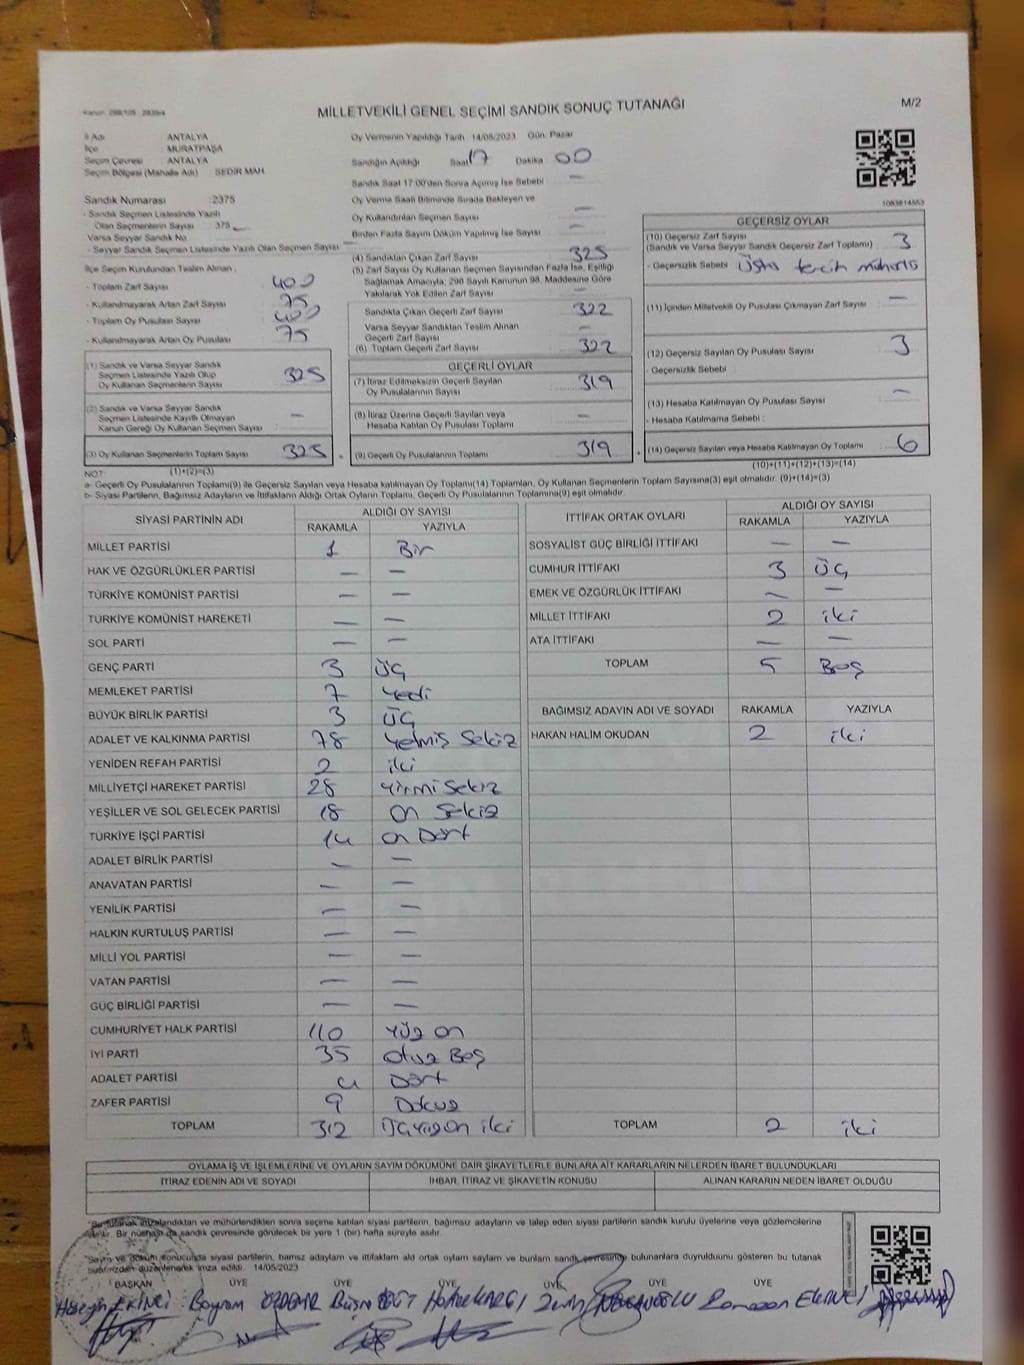 MİLLETVEKİLİ GENEL SEÇİMİ SANDIK SONUÇ TUTANAĞI
M/2
İl Adı ANTALYA
İlçe MURATPAŞA
Seçim Çevresi ANTALYA
Seçim Bölgesi (Mahalle Adı) SEDİR MAH
Sandık Numarası 2375
- Sandık Seçmen Listesinde Yazılı
Olan Seçmenlerin Sayısı 375
Varsa Seyyar Sandık No
- Seyyar Sandık Seçmen Listesinde Yazılı Olan Seçmen Sayısı —
İlçe Seçim Kurulundan Teslim Alınan :
- Toplam Zarf Sayısı 400
- Kullanılmayarak Artan Zarf Sayısı 75
- Toplam Oy Pusulası Sayısı 400
- Kullanılmayarak Artan Oy Pusulası 75
(1) Sandık ve Varsa Seyyar Sandık
Seçmen Listesinde Yazılı Olup
Oy Kullanan Seçmenlerin Sayısı 325
(2) Sandık ve Varsa Seyyar Sandık
Seçmen Listesinde Kayıtlı Olmayan
Kanun Gereği Oy Kullanan Seçmen Sayısı —
(3) Oy Kullanan Seçmenlerin Toplam Sayısı 325
(1)+(2)=(3)
Oy Vermenin Yapıldığı Tarih 14/05/2023 Gün: Pazar
Sandığın Açıldığı Saat 17 Dakika 00
Sandık Saat 17:00'den Sonra Açılmış İse Sebebi —
Oy Verme Saati Bitiminde Sırada Bekleyen ve
Oy Kullandırılan Seçmen Sayısı —
Birden Fazla Sayım Döküm Yapılmış İse Sayısı —
(4) Sandıktan Çıkan Zarf Sayısı 325
(5) Zarf Sayısı Oy Kullanan Seçmen Sayısından Fazla İse, Eşitliği
Sağlamak Amacıyla; 298 Sayılı Kanunun 98. Maddesine Göre
Yakılarak Yok Edilen Zarf Sayısı —
Sandıkta Çıkan Geçerli Zarf Sayısı 322
Varsa Seyyar Sandıktan Teslim Alınan
Geçerli Zarf Sayısı —
(6) Toplam Geçerli Zarf Sayısı 322
GEÇERLİ OYLAR
(7) İtiraz Edilmeksizin Geçerli Sayılan
Oy Pusulalarının Sayısı 319
(8) İtiraz Üzerine Geçerli Sayılan veya
Hesaba Katılan Oy Pusulası Toplamı —
(9) Geçerli Oy Pusulalarının Toplamı 319
1083814553
GEÇERSİZ OYLAR
(10) Geçersiz Zarf Sayısı
(Sandık ve Varsa Seyyar Sandık Geçersiz Zarf Toplamı) 3
- Geçersizlik Sebebi tercih
(11) İçinden Milletvekili Oy Pusulası Çıkmayan Zarf Sayısı —
(12) Geçersiz Sayılan Oy Pusulası Sayısı 3
- Geçersizlik Sebebi
(13) Hesaba Katılmayan Oy Pusulası Sayısı —
- Hesaba Katılmama Sebebi :
(14) Geçersiz Sayılan veya Hesaba Katılmayan Oy Toplamı 6
(10)+(11)+(12)+(13)=(14)
NOT:
a- Geçerli Oy Pusulalarının Toplamı(9) ile Geçersiz Sayılan veya Hesaba Katılmayan Oy Toplamı(14) Toplamları, Oy Kullanan Seçmenlerin Toplam Sayısına(3) eşit olmalıdır. (9)+(14)=(3)
b- Siyasi Partilerin, Bağımsız Adayların ve İttifakların Aldığı Ortak Oyların Toplamı, Geçerli Oy Pusulalarının Toplamına(9) eşit olmalıdır.
SİYASİ PARTİNİN ADI ALDIĞI OY SAYISI
RAKAMLA YAZIYLA
MİLLET PARTİSİ 1 Bir
HAK VE ÖZGÜRLÜKLER PARTİSİ — —
TÜRKİYE KOMÜNİST PARTİSİ — —
TÜRKİYE KOMÜNİST HAREKETİ — —
SOL PARTİ — —
GENÇ PARTİ 3 Üç
MEMLEKET PARTİSİ 7 Yedi
BÜYÜK BİRLİK PARTİSİ 3 Üç
ADALET VE KALKINMA PARTİSİ 78 Yetmiş Sekiz
YENİDEN REFAH PARTİSİ 2 iki
MİLLİYETÇİ HAREKET PARTİSİ 28 Yirmi Sekiz
YEŞİLLER VE SOL GELECEK PARTİSİ 18 On Sekiz
TÜRKİYE İŞÇİ PARTİSİ 14 On Dört
ADALET BİRLİK PARTİSİ — —
ANAVATAN PARTİSİ — —
YENİLİK PARTİSİ — —
HALKIN KURTULUŞ PARTİSİ — —
MİLLİ YOL PARTİSİ — —
VATAN PARTİSİ — —
GÜÇ BİRLİĞİ PARTİSİ — —
CUMHURİYET HALK PARTİSİ 110 Yüz on
İYİ PARTİ 35 Otuz Beş
ADALET PARTİSİ 4 Dört
ZAFER PARTİSİ 9 Dokuz
TOPLAM 312 Üçyüzon iki
İTTİFAK ORTAK OYLARI ALDIĞI OY SAYISI
RAKAMLA YAZIYLA
SOSYALİST GÜÇ BİRLİĞİ İTTİFAKI — —
CUMHUR İTTİFAKI 3 Üç
EMEK VE ÖZGÜRLÜK İTTİFAKI — —
MİLLET İTTİFAKI 2 iki
ATA İTTİFAKI — —
TOPLAM 5 Beş
BAĞIMSIZ ADAYIN ADI VE SOYADI RAKAMLA YAZIYLA
HAKAN HALİM OKUDAN 2 iki
TOPLAM 2 iki
OYLAMA İŞ VE İŞLEMLERİNE VE OYLARIN SAYIM DÖKÜMÜNE DAİR ŞİKAYETLERLE BUNLARA AİT KARARLARIN NELERDEN İBARET BULUNDUKLARI
İTİRAZ EDENİN ADI VE SOYADI İHBAR, İTİRAZ VE ŞİKAYETİN KONUSU ALINAN KARARIN NEDEN İBARET OLDUĞU
tutanak imzalandıktan ve mühürlendikten sonra seçime katılan siyasi partilerin, bağımsız adayların ve talep eden siyasi partilerin sandık kurulu üyelerine veya gözlemcilerine
verilir. Bir nüshası da sandık çevresinde görülecek bir yere 1 (bir) hafta süreyle asılır.
döküm sonucunda siyasi partilerin, adayların ve ittifakların ortak sandık çevresinde bulunanlara duyrulduğunu gösteren bu tutanak
düzenlenerek imza edildi. 14/05/2023
BAŞKAN ÜYE ÜYE ÜYE ÜYE ÜYE ÜYE
EKİNCİ Bayram ÖZDEMİR Büşra Ramazan